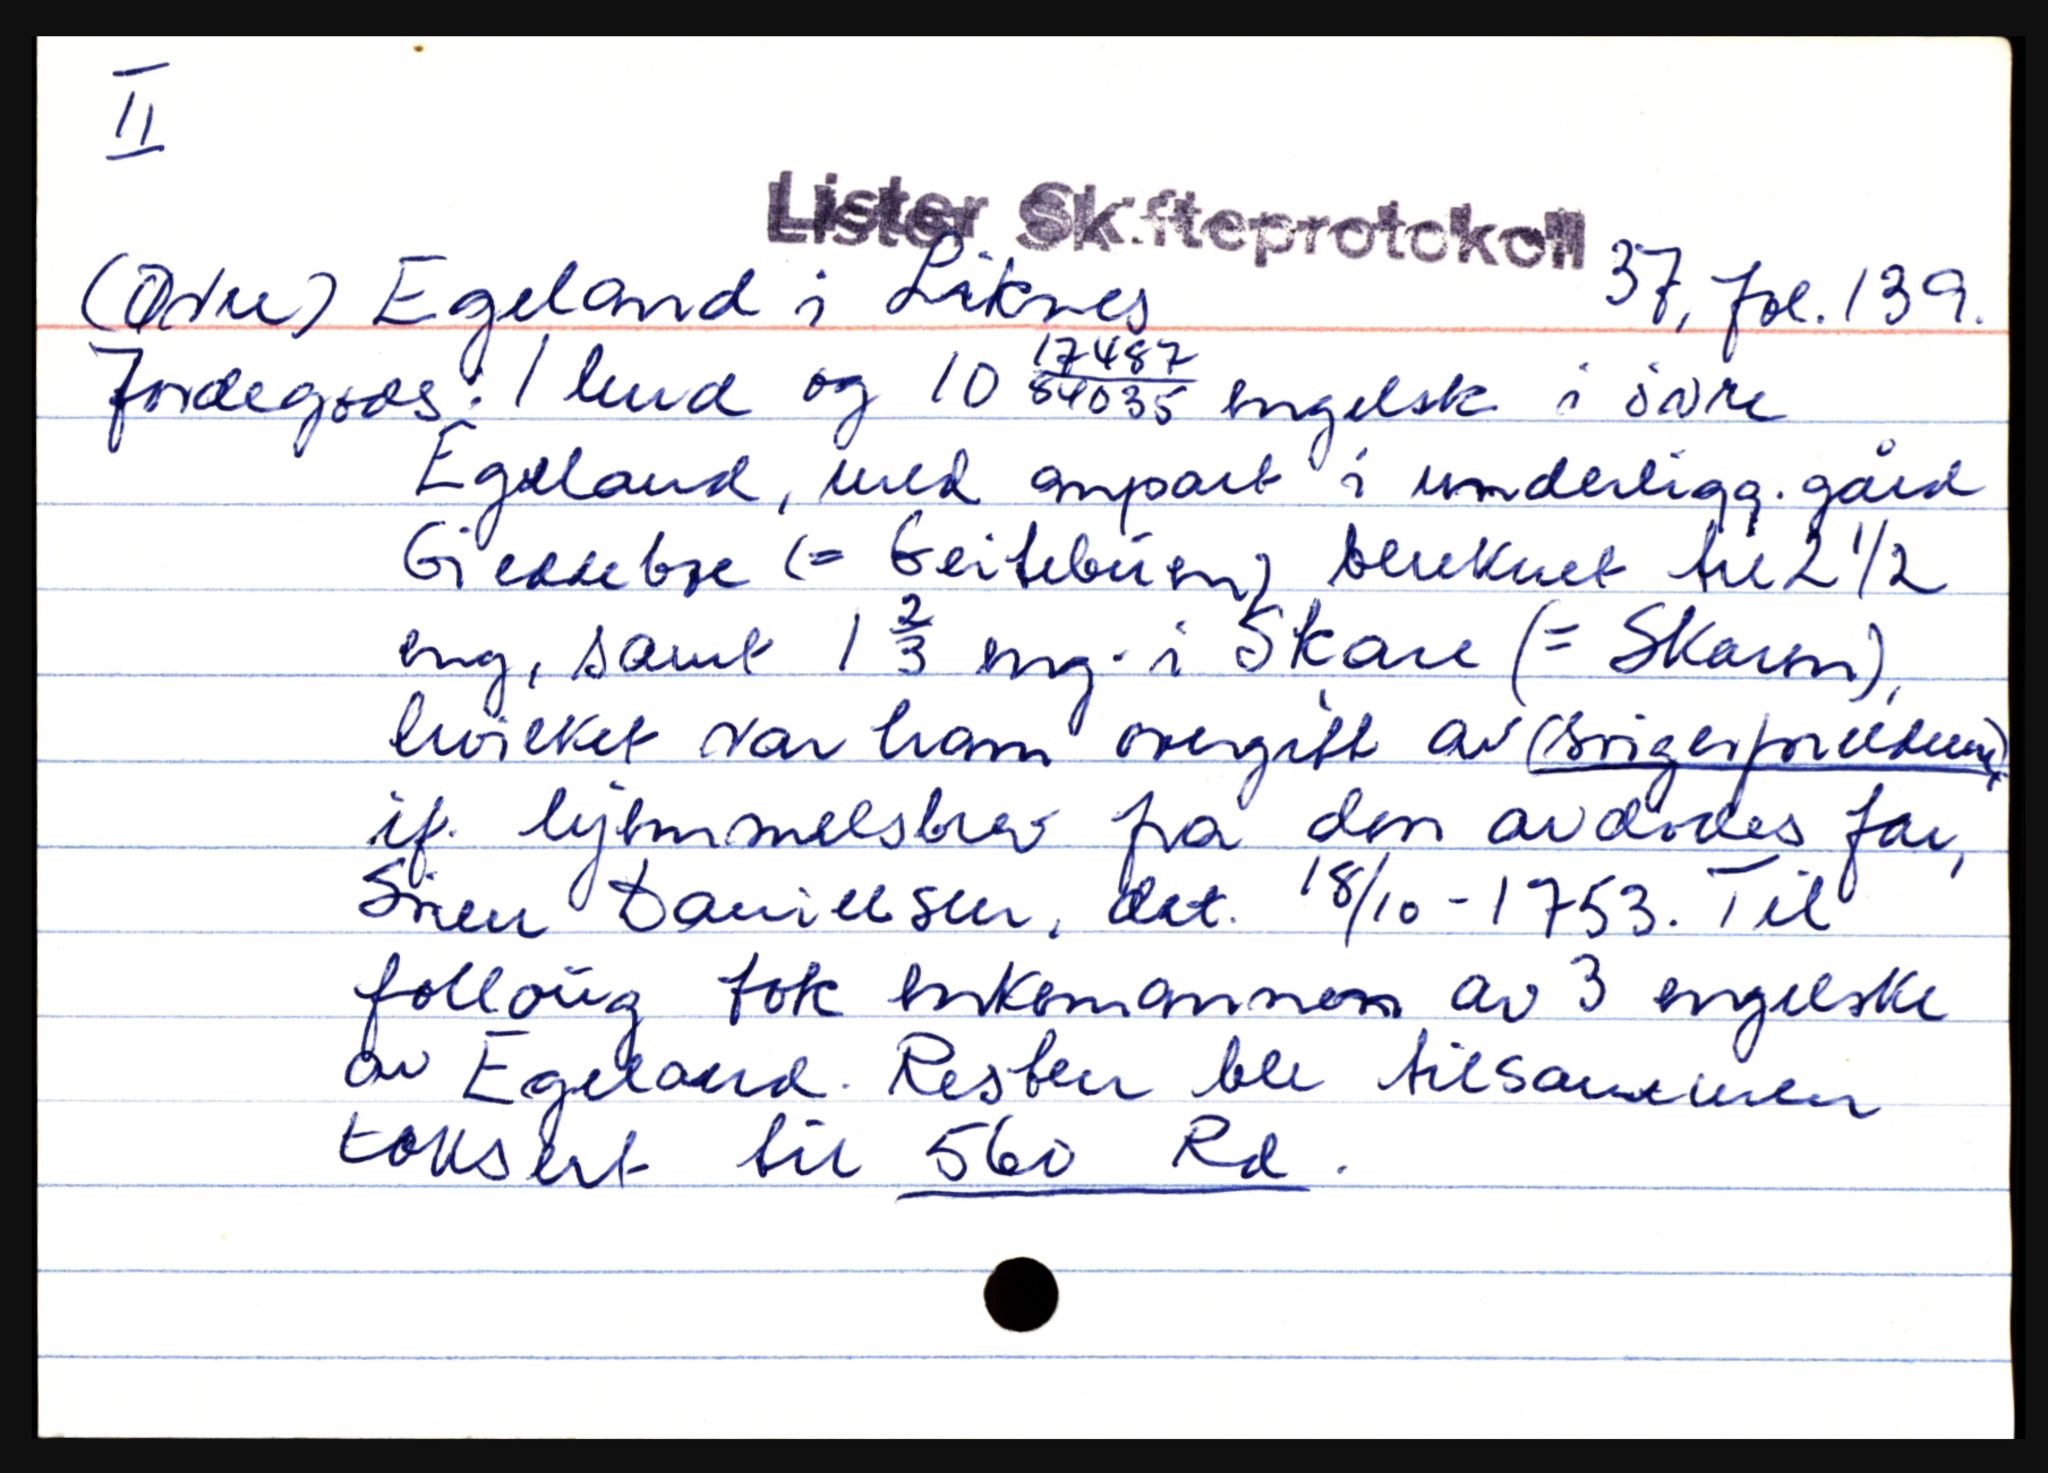 II
Lister Skifteprotokoll
(Övre) Egeland i Liknes 37, fol. 139.
Jordegods: 1 hud og 10 17487/84035 engelsk i övre
Egeland, med anpart i underligg. gård
Gieddebøe (= Geitebuen) bereknet til 2 1/2
eng, samt 1 2/3 eng. i Skare (= Skaren),
hvilket var ham overgitt av (svigerforeldrene)
if. hjemmelsbrev fra den avdödes far,
Sören Danielsen, dat. 18/10 - 1753. Til
følloug tok enkemannen av 3 engelske
av Egeland. Resten ble tilsammen
taksert til 560 Rd.